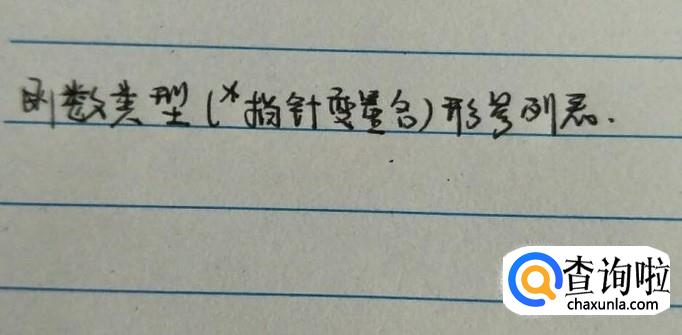 函数类型(*指针变量名)形参列表.
查询啦
chaxunla.com